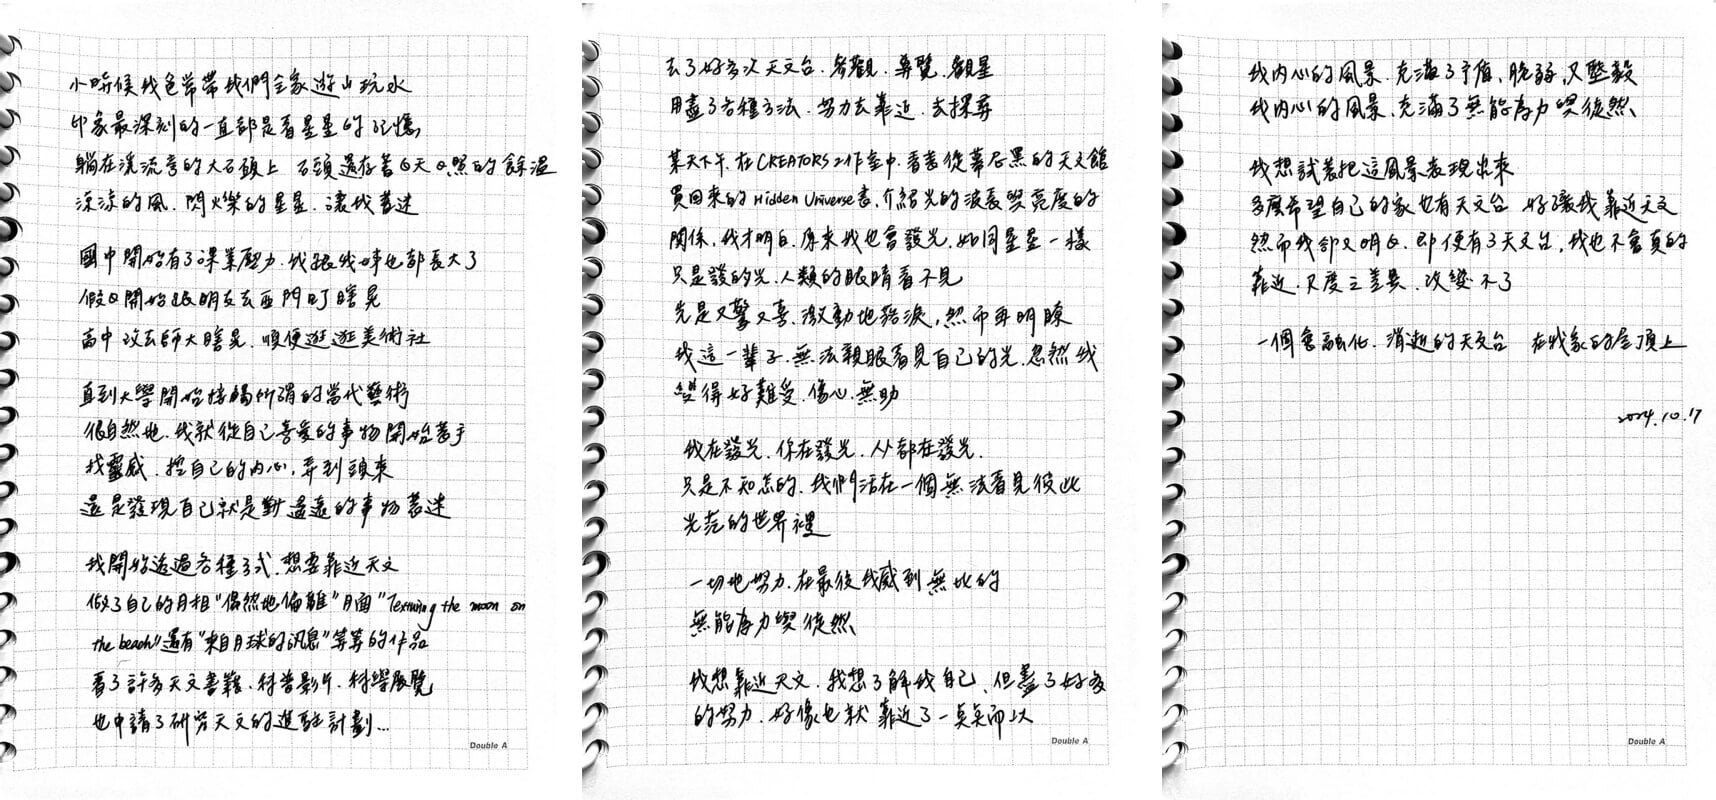 小時候我爸常帶我們全家遊山玩水
印象最深刻的一直都是看星星的記憶
躺在溪流旁的大石頭上 石頭還存著白天日照的餘溫
涼涼的風、閃爍的星星、讓我著迷
國中開始有了課業壓力、我跟我妹也都長大了
假日開始跟朋友去西門町瞎晃
高中改去師大瞎晃、順便逛逛美術社
直到大學開始接觸所謂的當代藝術
很自然地、我就從自己喜愛的事物開始著手
找靈感、挖自己的內心，弄到頭來
還是發現自己就是對遙遠的事物著迷
我開始透過各種方式、想要靠近天文
做了自己的月相"偶然地偏離"月面"Texturing the moon on
the beach"還有"來自月球的訊息"等等的作品
看了許多天文書籍、科普影片、科學展覽
也申請了研究天文的進駐計劃...
Double A
去了好多次天文台、參觀、導覽、觀星
用盡了各種方法、努力去靠近、去探尋
某天下午、在CREATORS工作室中、看著從慕尼黑的天文館
買回來的Hidden Universe書，介紹光的波長與亮度的
關係，我才明白，原來我也會發光，如同星星一樣
只是發的光，人類的眼睛看不見
先是又驚又喜、激動地落淚，然而再明瞭
我這一輩子、無法親眼看見自己的光、忽然我
變得好難受、傷心、無助
我在發光、你在發光、人人都在發光、
只是不知怎的、我們活在一個無法看見彼此
光芒的世界裡
一切地努力、在最後我感到無比的
無能為力與徒然
我想靠近天文、我想了解我自己、但盡了好多
的努力、好像也就靠近了一點點而以
Double A
我內心的風景、充滿了矛盾、脆弱、又堅毅
我內心的風景、充滿了無能為力與徒然
我想試著把這風景表現出來
多麼希望自己的家也有天文台 好讓我靠近天文
然而我卻又明白、即便有了天文台，我也不會真的
靠近、尺度之差異、改變不了
一個會融化、消逝的天文台 在我家的屋頂上
2024.10.17
Double A